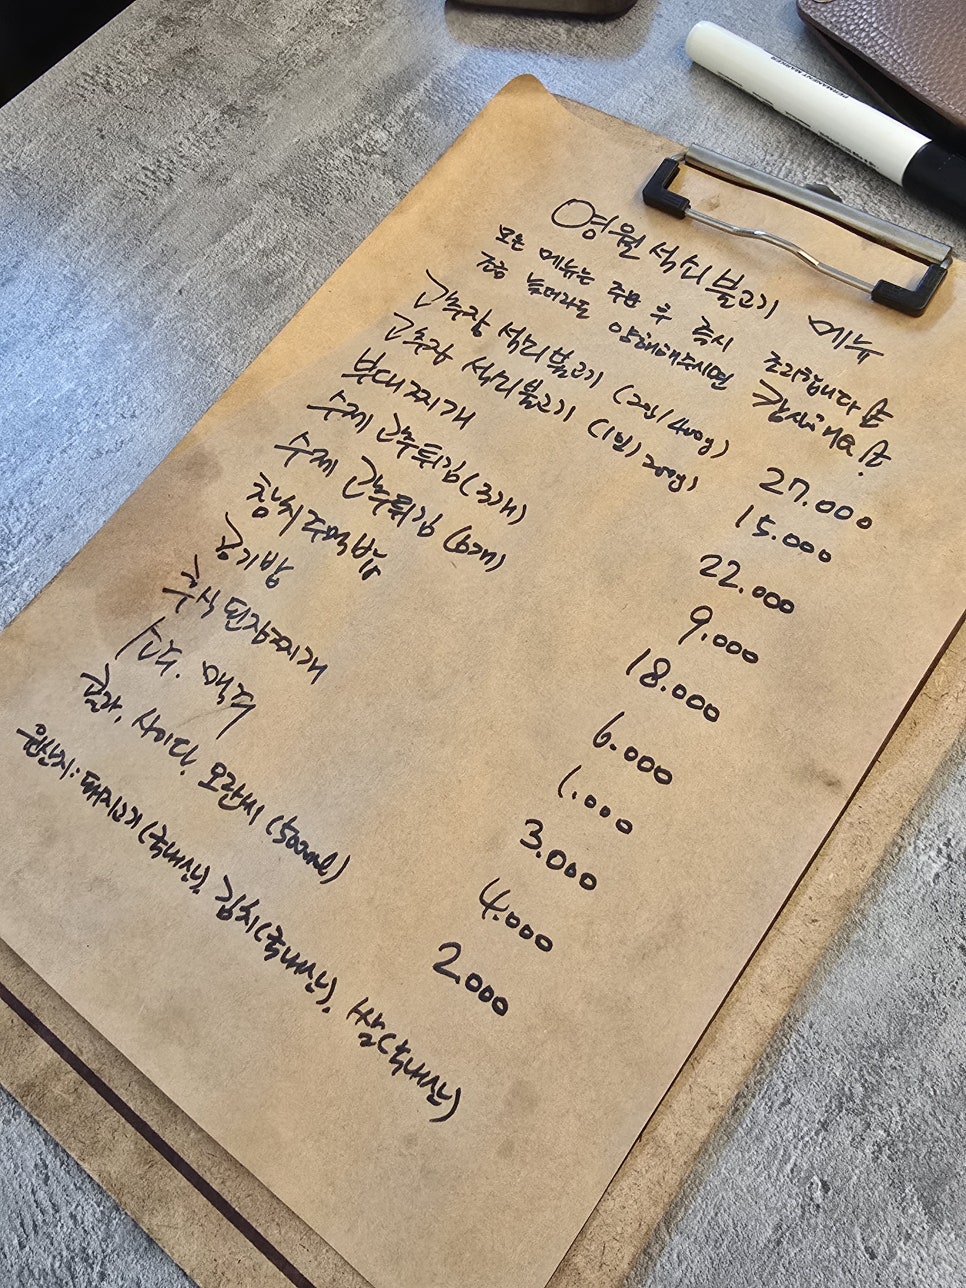 영월 석쇠불고기 메뉴
모든 메뉴는 주문 후 즉시 조리합니다
조금 늦더라도 양해해주시면 감사해요!
고추장 석쇠불고기 (2인/400g) 27.000
고추장 석쇠불고기 (1인/200g) 15.000
부대찌개 22.000
수제 고추튀김 (3개) 9.000
수제 고추튀김 (6개) 18.000
참치주먹밥 6.000
공기밥 1.000
후식 된장찌개 3.000
소주. 맥주 4.000
콜라. 사이다. 모란씨 (500ml) 2.000
원산지: 돼지고기(국내산), 김치(국내산), 쌀(국내산)
PERMANENT MARKER